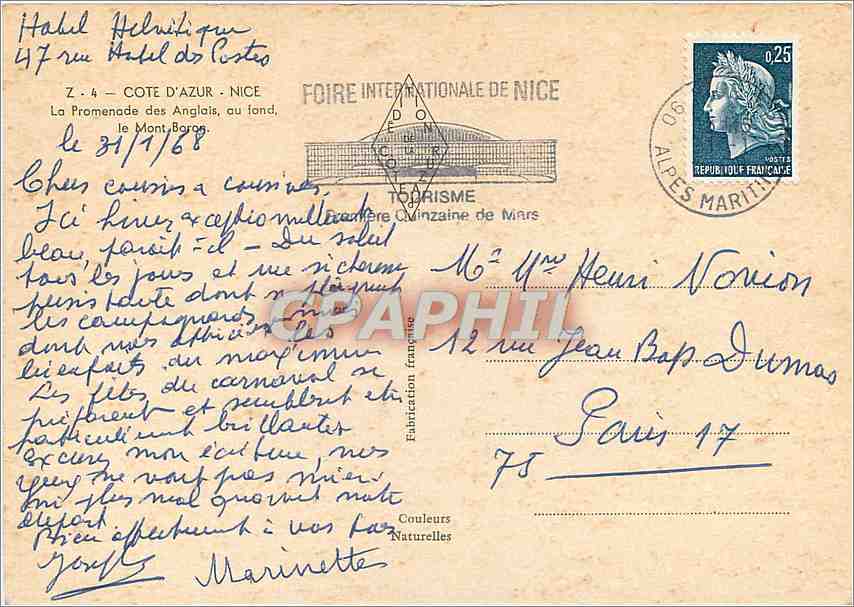 Hotel Helvétique
47 rue Hotel des Postes
Z - 4 — COTE D'AZUR - NICE
La Promenade des Anglais, au fond,
le Mont Boron.
le 31/1/68
Chers cousins et cousines.
Ici hiver exceptionnellement
beau, parait-il - Du soleil
tous les jours et une sécheresse
persistante dont se plaignent
les campagnards mais
dont nous apprécions les
bienfaits au maximum
Les fêtes du carnaval se
préparent et semblent être
particulièrement brillantes
excusez mon écriture, mes
yeux ne vont pas mieux
ni plus mal qu'avant notre
départ
Bien affectueusement à vous tous
Joseph
Marinette
FOIRE INTERNATIONALE DE NICE
TOURISME
Première Quinzaine de Mars
0,25
POSTES
REPUBLIQUE FRANÇAISE
06
ALPES MARITIMES
CPAPHIL
Mr Mme Henri Novion
12 rue Jean Bap Dumas
Paris 17
75
Fabrication française
Couleurs
Naturelles